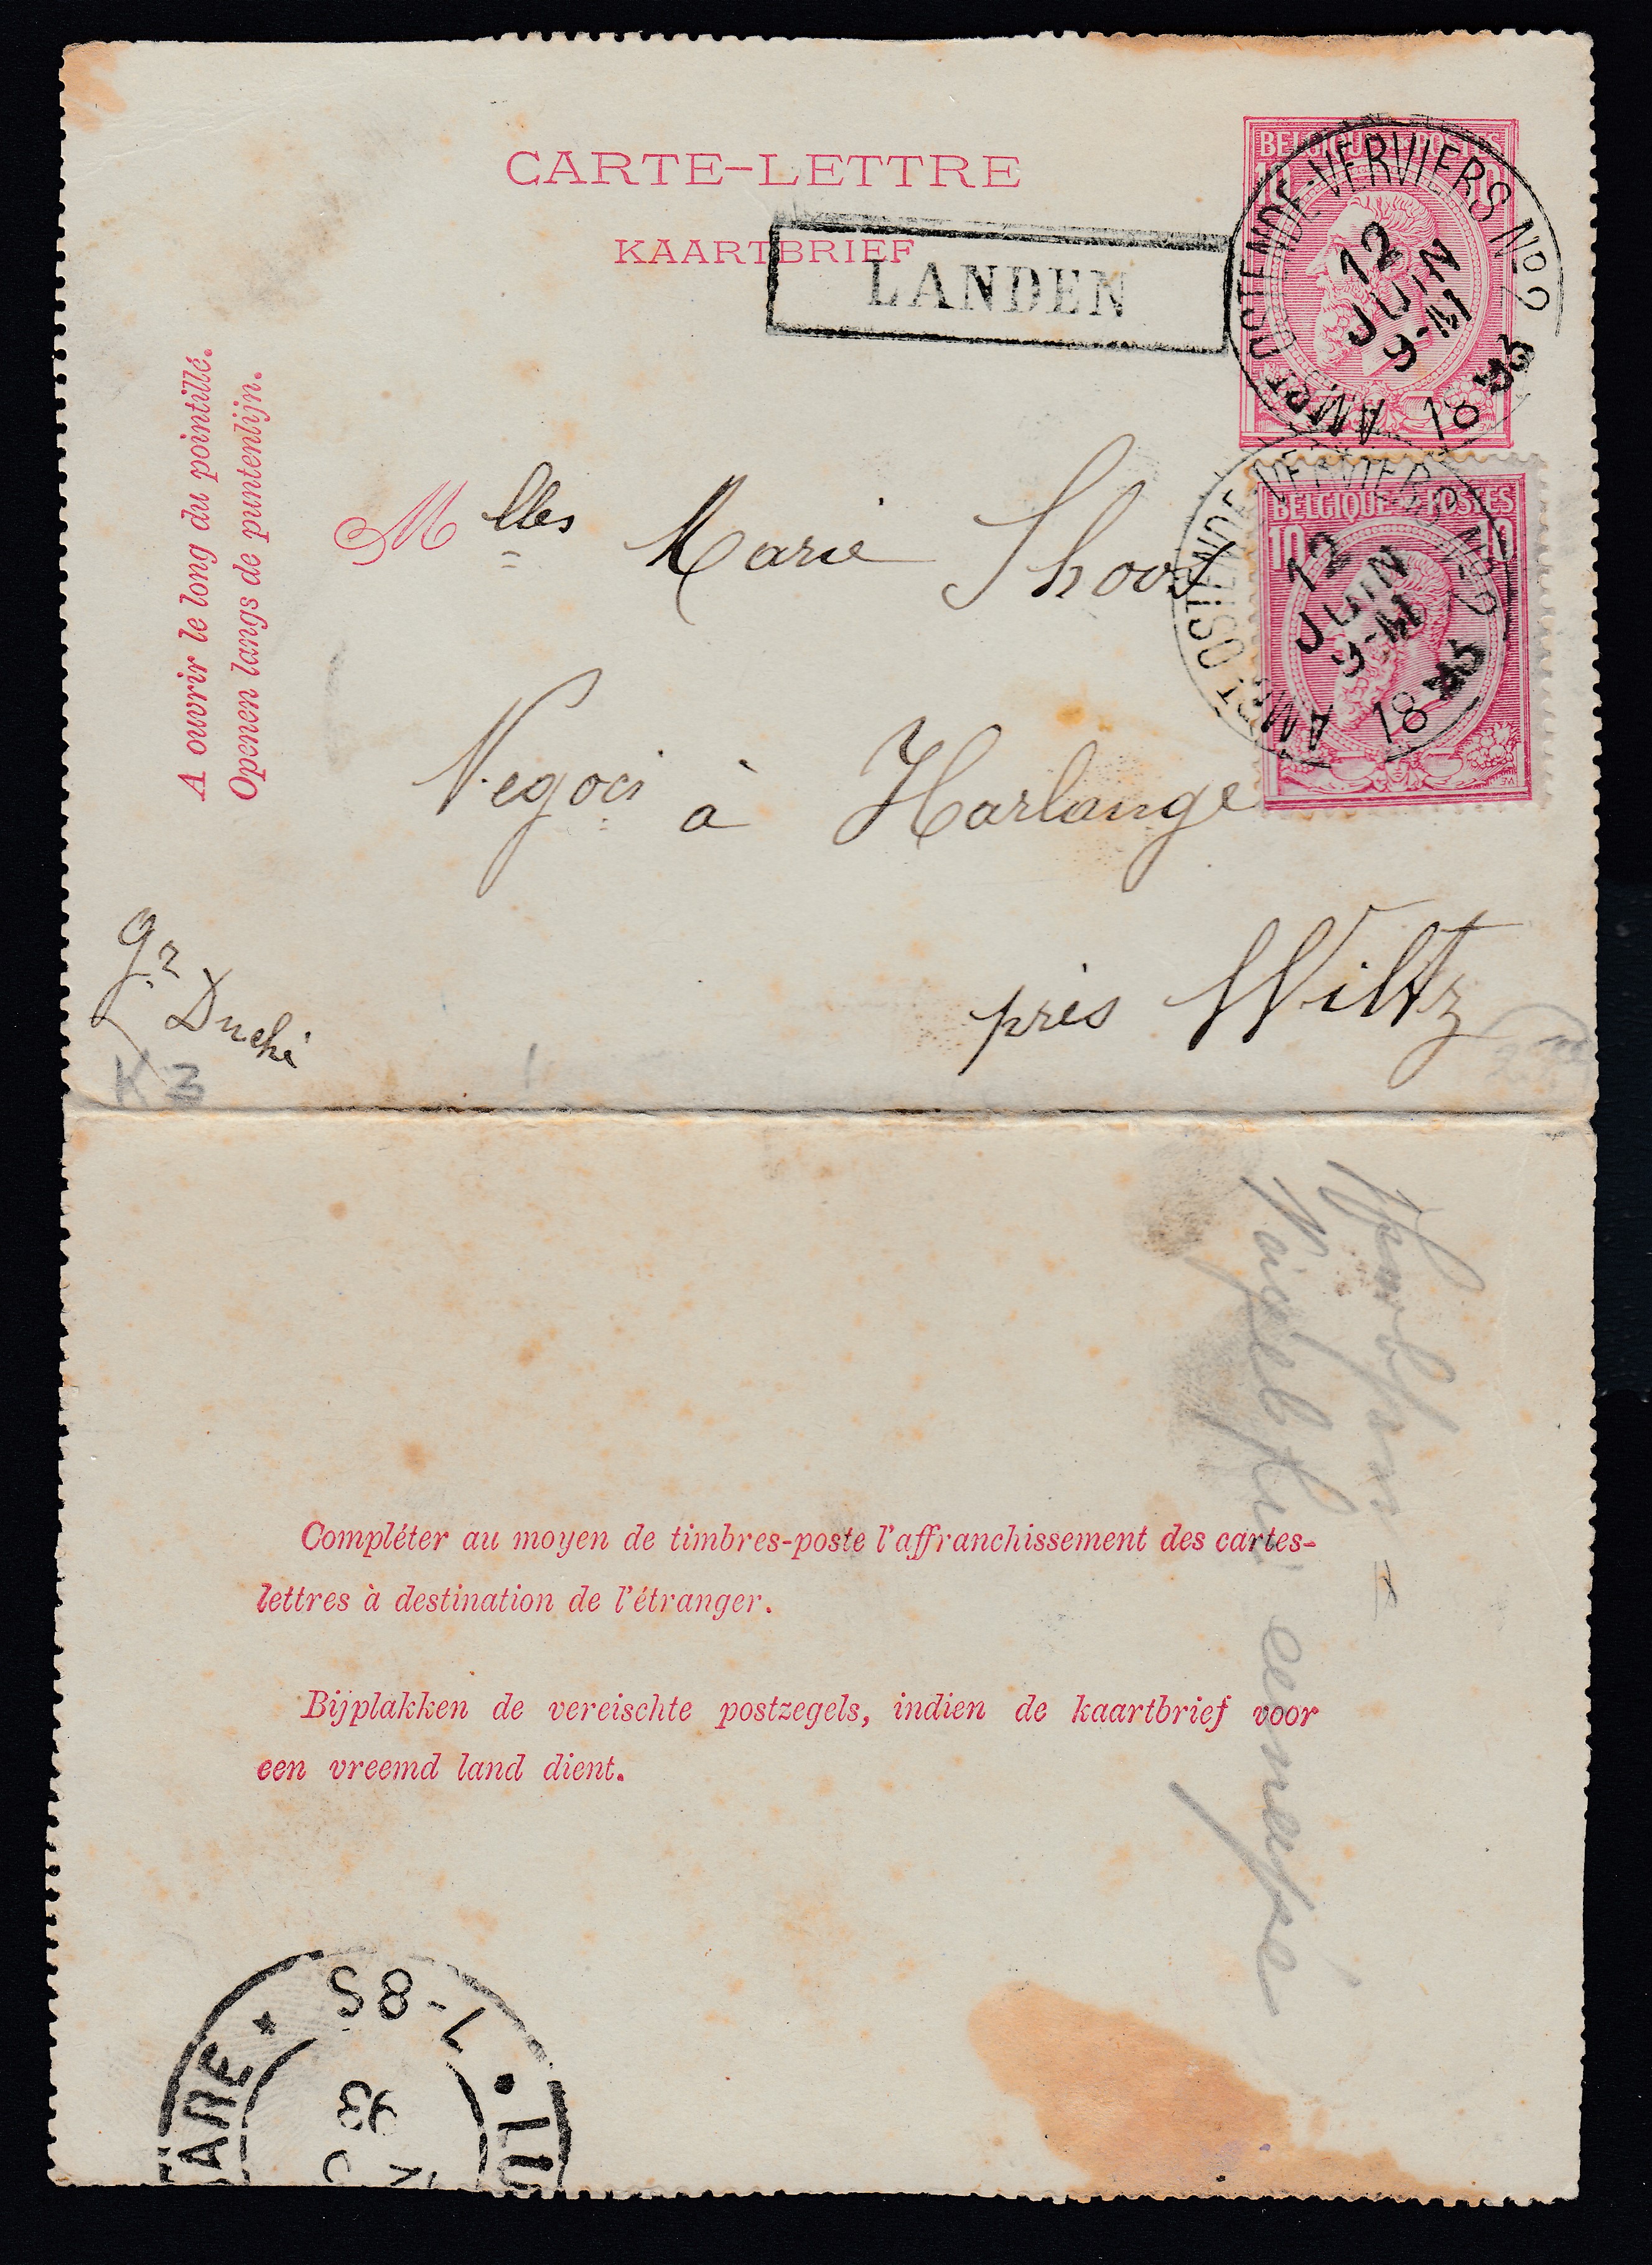 CARTE-LETTRE
KAARTBRIEF
LANDEN
BELGIQUE POSTES
10 10
AMBT OSTENDE-VERVIERS No 2
12
JUIN
9-M
18 93
A ouvrir le long du pointillé.
Openen langs de puntenlijn.
Mlles Marie Shoos
BELGIQUE POSTES
10 10
AMBT OSTENDE-VERVIERS No 2
12
JUIN
9-M
18 93
Negoci à Harlange
près Wiltz
Gr Duché
K 3
Compléter au moyen de timbres-poste l'affranchissement des cartes-
lettres à destination de l'étranger.
Bijplakken de vereischte postzegels, indien de kaartbrief voor
een vreemd land dient.
7-8S
93
GARE
LU